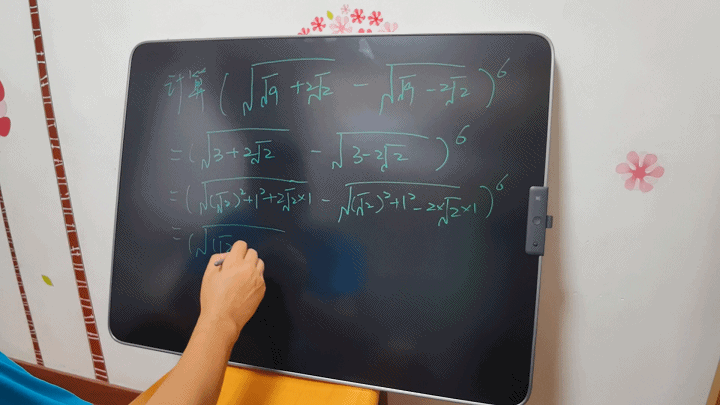 计算(√(√9+2√2) - √(√9-2√2))^6
=(√(3+2√2) - √(3-2√2))^6
=(√((√2)²+1²+2√2×1) - √((√2)²+1²-2×√2×1))^6
=(√((√2